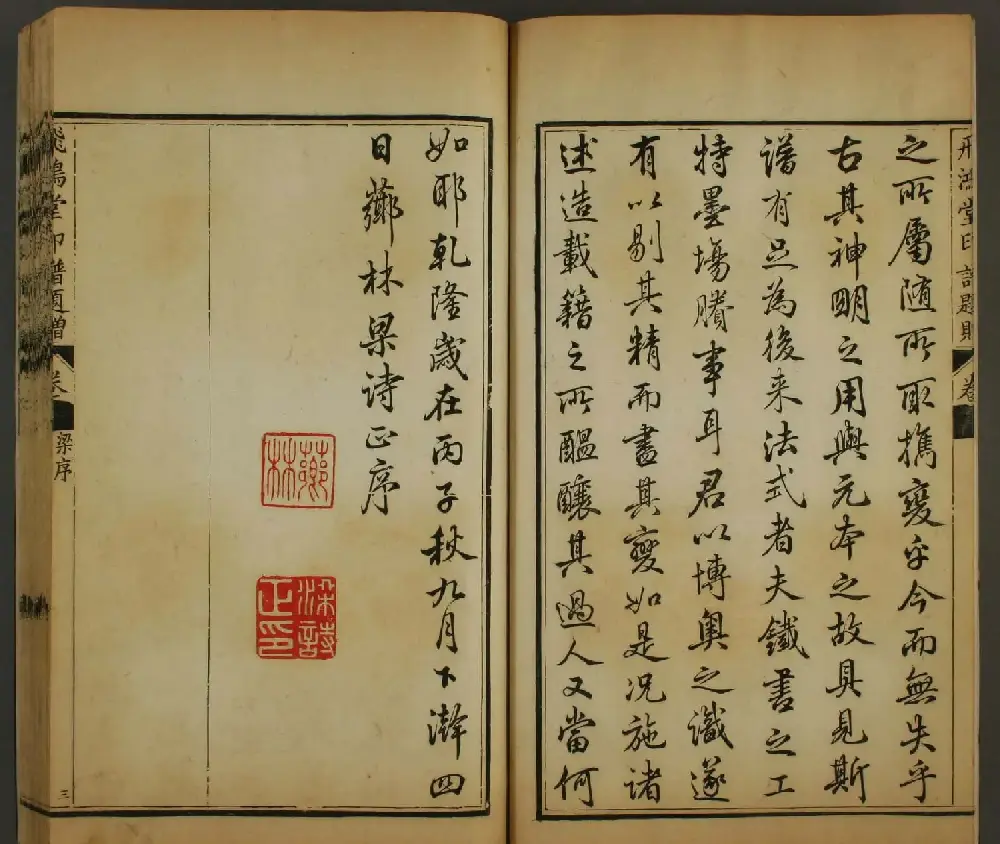 飛鴻堂印譜題贈
卷一
之所屬随所取攜變乎今而無失乎
古其神明之用與元本之故具見斯
譜有足為後来法式者夫鐵書之工
特墨場賸事耳君以博奧之識邃
有以剔其精而盡其變如是况施诸
述造載籍之所醖釀其過人又當何
如耶乾隆歲在丙子秋九月下澣四
日薌林梁诗正序
薌林
梁詩正印
飛鴻堂印譜題贈
卷一
梁序
三